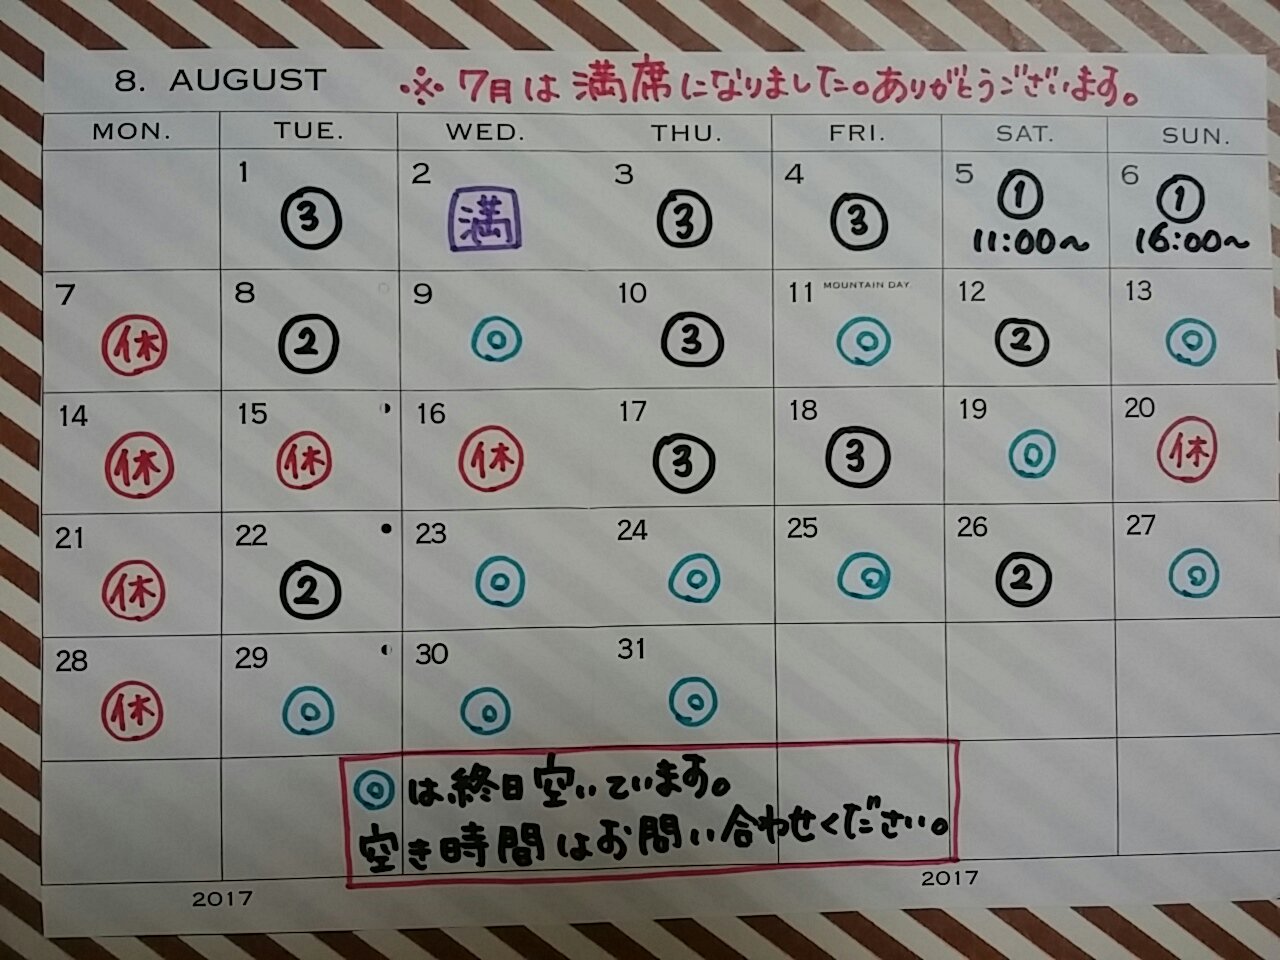 8. AUGUST ※7月は満席になりました。ありがとうございます。
MON. TUE. WED. THU. FRI. SAT. SUN.
1 2 3 4 5 6
③ 満 ③ ③ ① ①
11:00～ 16:00～
7 8 9 10 11 MOUNTAIN DAY 12 13
休 ② ◎ ③ ◎ ② ◎
14 15 16 17 18 19 20
休 休 休 ③ ③ ◎ 休
21 22 23 24 25 26 27
休 ② ◎ ◎ ◎ ② ◎
28 29 30 31
休 ◎ ◎ ◎
◎は終日空いています。
空き時間はお問い合わせください。
2017 2017